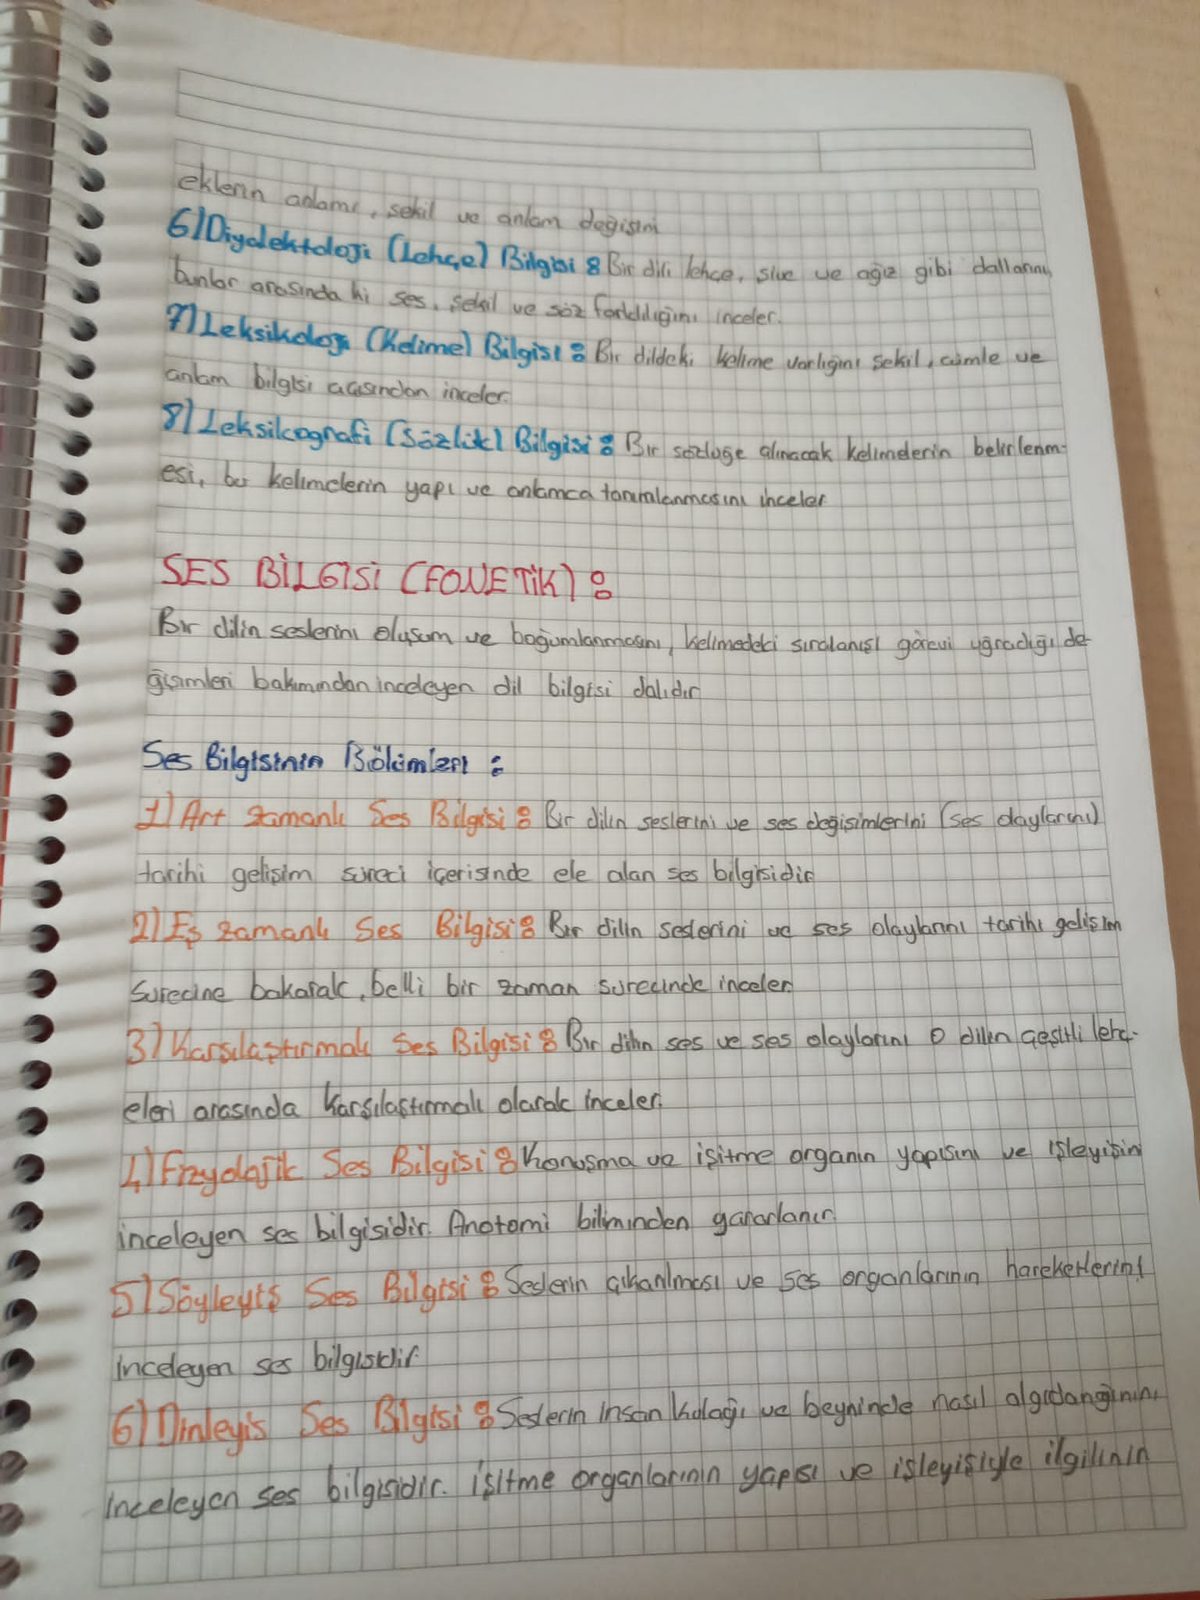 eklerin anlamı, sekil ve anlam değişimi
6) Diyalektoloji (Lehçe) Bilgisi : Bir dili lehce, sive ve ağız gibi dallarını,
bunlar arasında ki ses, sekil ve söz farklılığını inceler.
7) Leksikoloji (Kelime) Bilgisi : Bir dildeki kelime varlığını sekil, cümle ve
anlam bilgisi acısından inceler.
8) Leksikografi (Sözlük) Bilgisi : Bir sözlüğe alınacak kelimelerin belirlenm-
esi, bu kelimelerin yapı ve anlamca tanımlanmasını inceler
SES BİLGİSİ (FONETİK) :
Bir dilin seslerini oluşum ve boğumlanmasını, kelimedeki sıralanışı görevi uğradığı de-
ğişimleri bakımından inceleyen dil bilgisi dalıdır
Ses Bilgisinin Bölümleri :
1) Art zamanlı Ses Bilgisi : Bir dilin seslerini ve ses değişimlerini (ses olaylarını)
tarihi gelişim süreci içerisinde ele alan ses bilgisidir
2) Eş zamanlı Ses Bilgisi : Bir dilin seslerini ve ses olaylarını tarihi gelişim
surecine bakarak, belli bir zaman surecinde inceler.
3) Karşılaştırmalı Ses Bilgisi : Bir dilin ses ve ses olaylarını o dilin çeşitli lehç-
eleri arasında karşılaştırmalı olarak inceler.
4) Fizyolojik Ses Bilgisi : Konuşma ve işitme organın yapısını ve işleyişin
inceleyen ses bilgisidir. Anotomi biliminden yararlanır.
5) Söyleyiş Ses Bilgisi : Seslerin çıkarılması ve ses organlarının hareketlerini
inceleyen ses bilgisidir
6) Dinleyis Ses Bilgisi : Seslerin insan kulağı ve beyninde nasıl
inceleyen ses bilgisidir. İşitme organlarının yapısı ve işleyişiyle ilgilinin